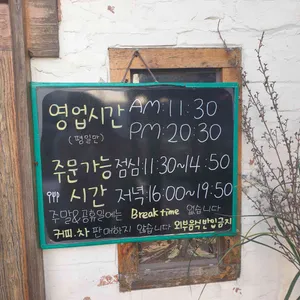 영업시간 AM:11:30
(평일만) PM:20:30
주문가능 점심:11:30~14:50
시간 저녁:16:00~19:50
주말&공휴일에는 Break time 없습니다
커피.차 판매하지 않습니다 외부음식반입금지